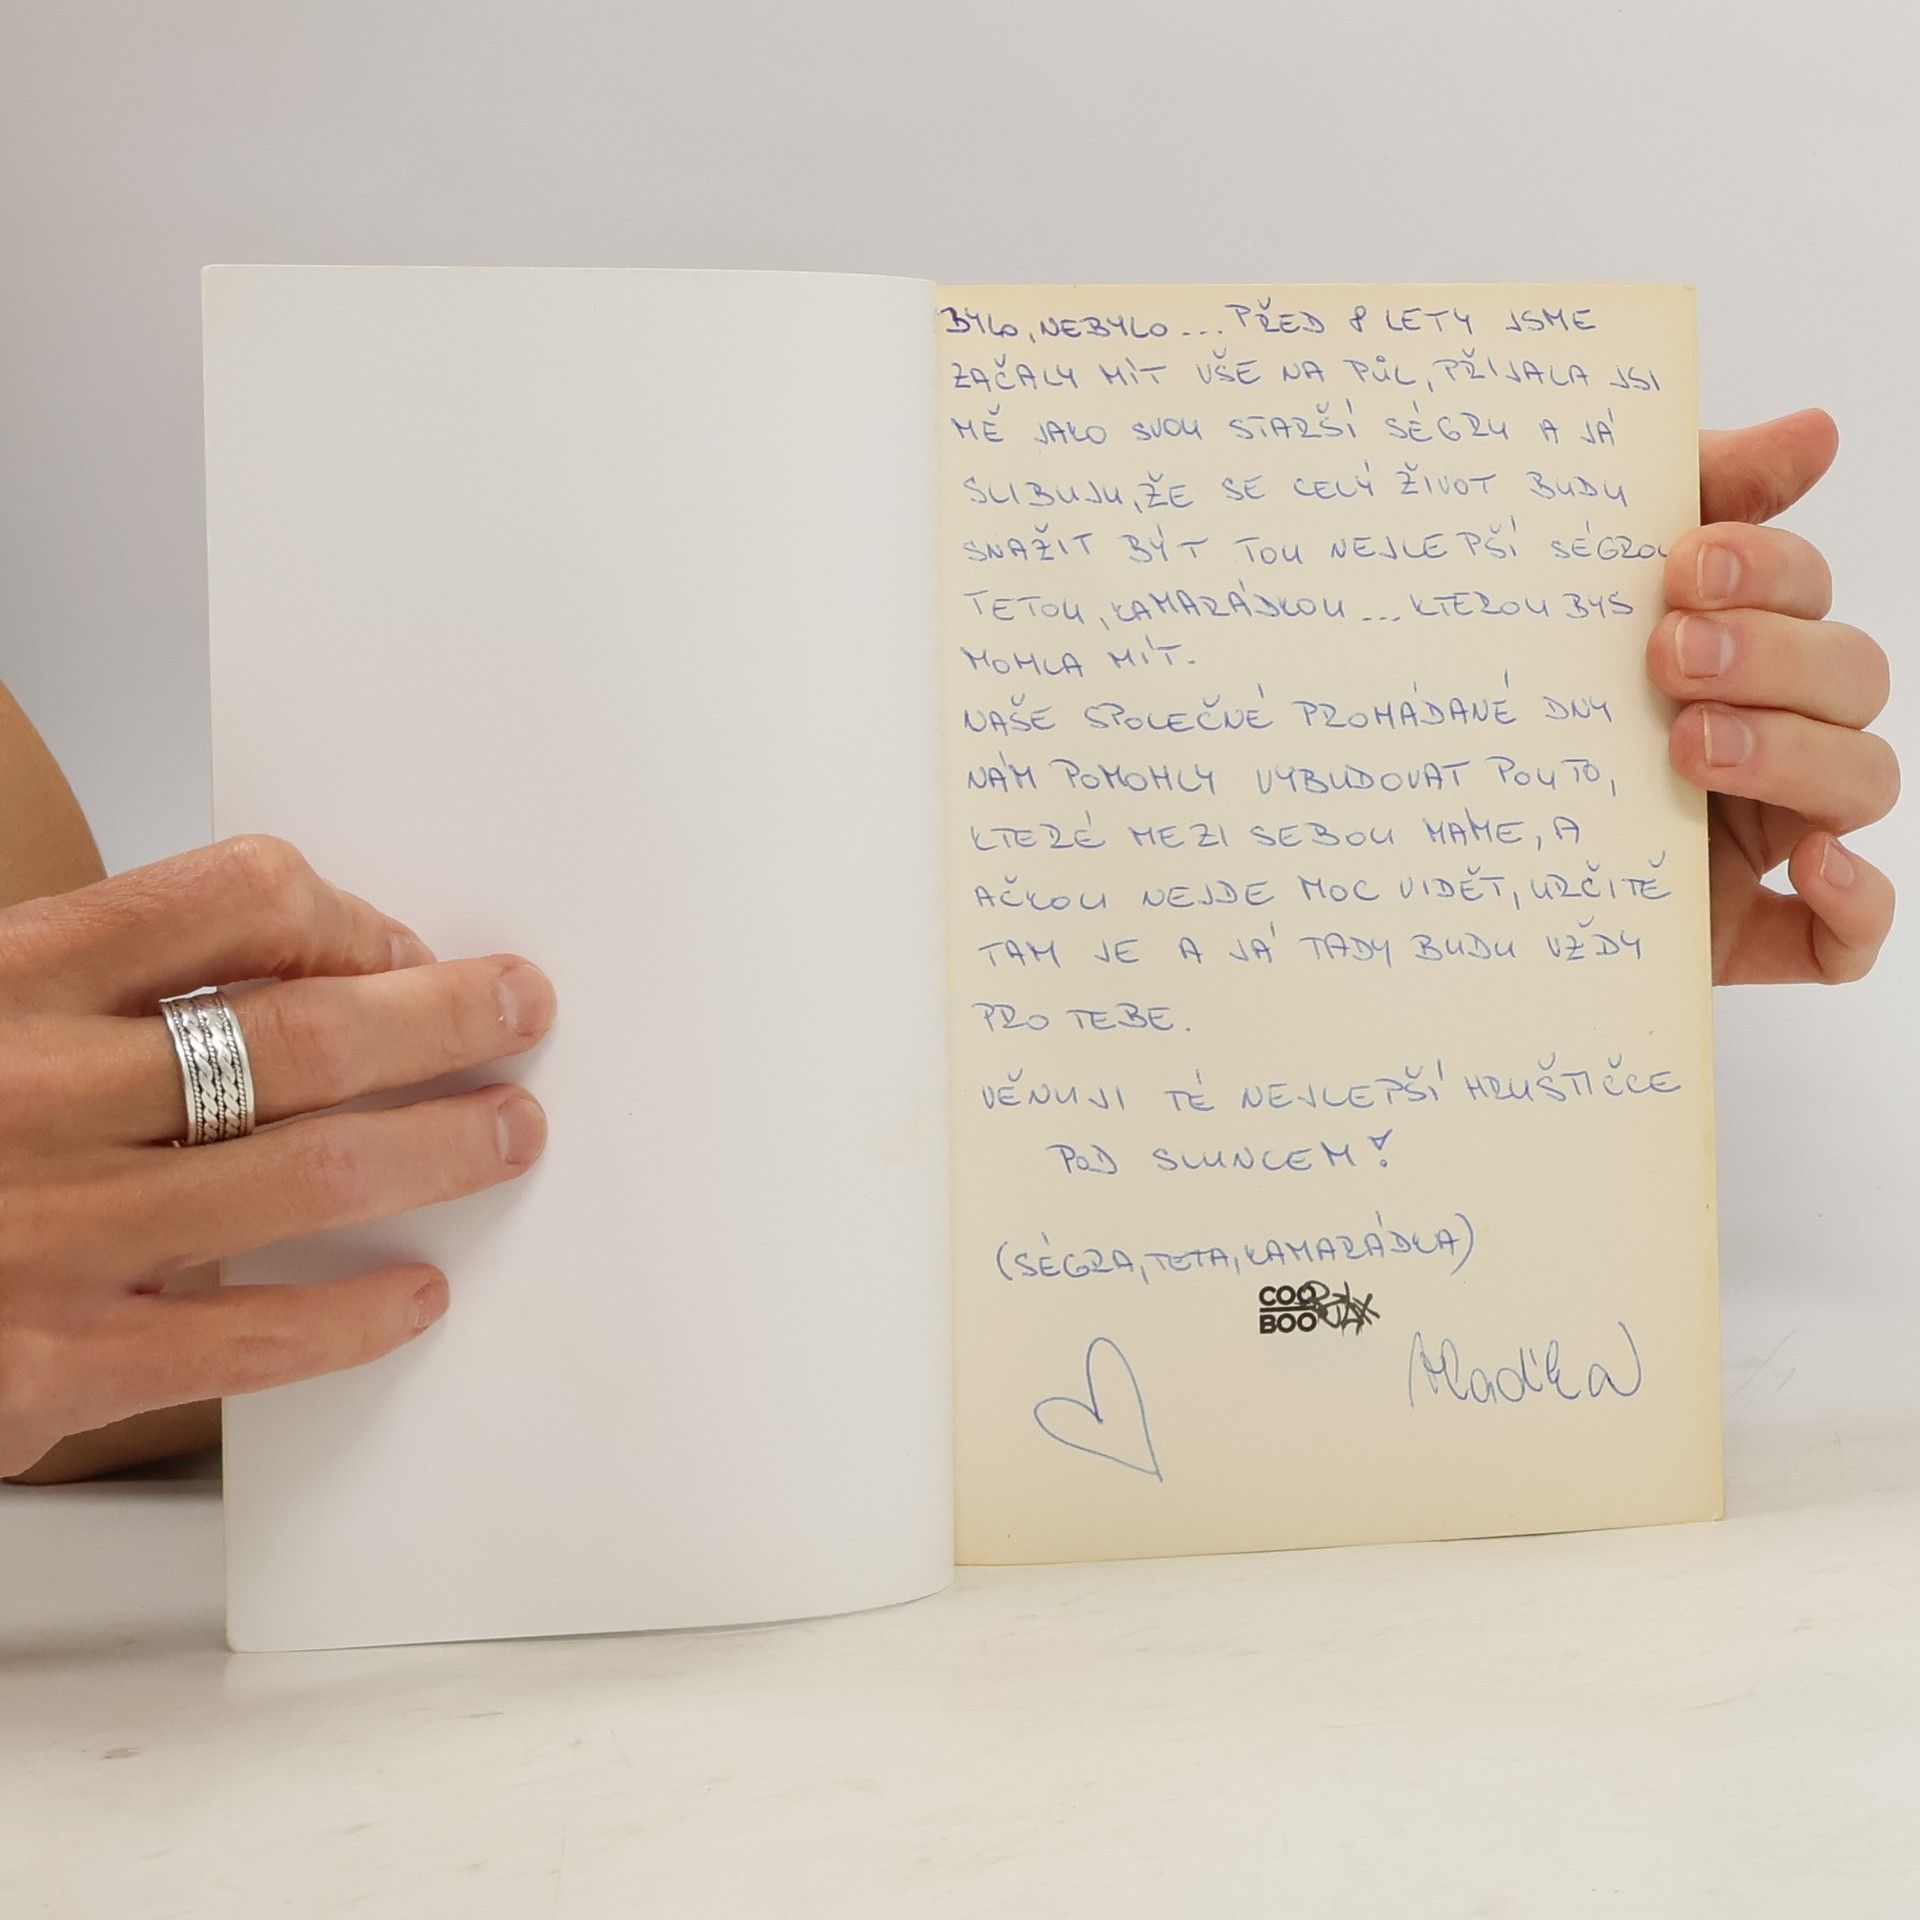 BYLO, NEBYLO... PŘED 8 LETY JSME
ZAČALY MÍT VŠE NA PŮL, PŘIJALA JSI
MĚ JAKO SVOU STARŠÍ SÉGRU A JÁ
SLIBUJU, ŽE SE CELÝ ŽIVOT BUDU
SNAŽIT BÝT TOU NEJLEPŠÍ SÉGROU
TETOU, KAMARÁDKOU... KTEROU BYS
MOHLA MÍT.
NAŠE SPOLEČNÉ PROHÁDANÉ DNY
NÁM POMOHLY VYBUDOVAT POUTO,
KTERÉ MEZI SEBOU MÁME, A
AČKOLI NEJDE MOC VIDĚT, URČITĚ
TAM JE A JÁ TADY BUDU VŽDY
PRO TEBE.
VĚNUJI TÉ NEJLEPŠÍ HRUŠTIČCE
POD SLUNCEM!
(SÉGRA, TETA, KAMARÁDKA)
COO
BOO